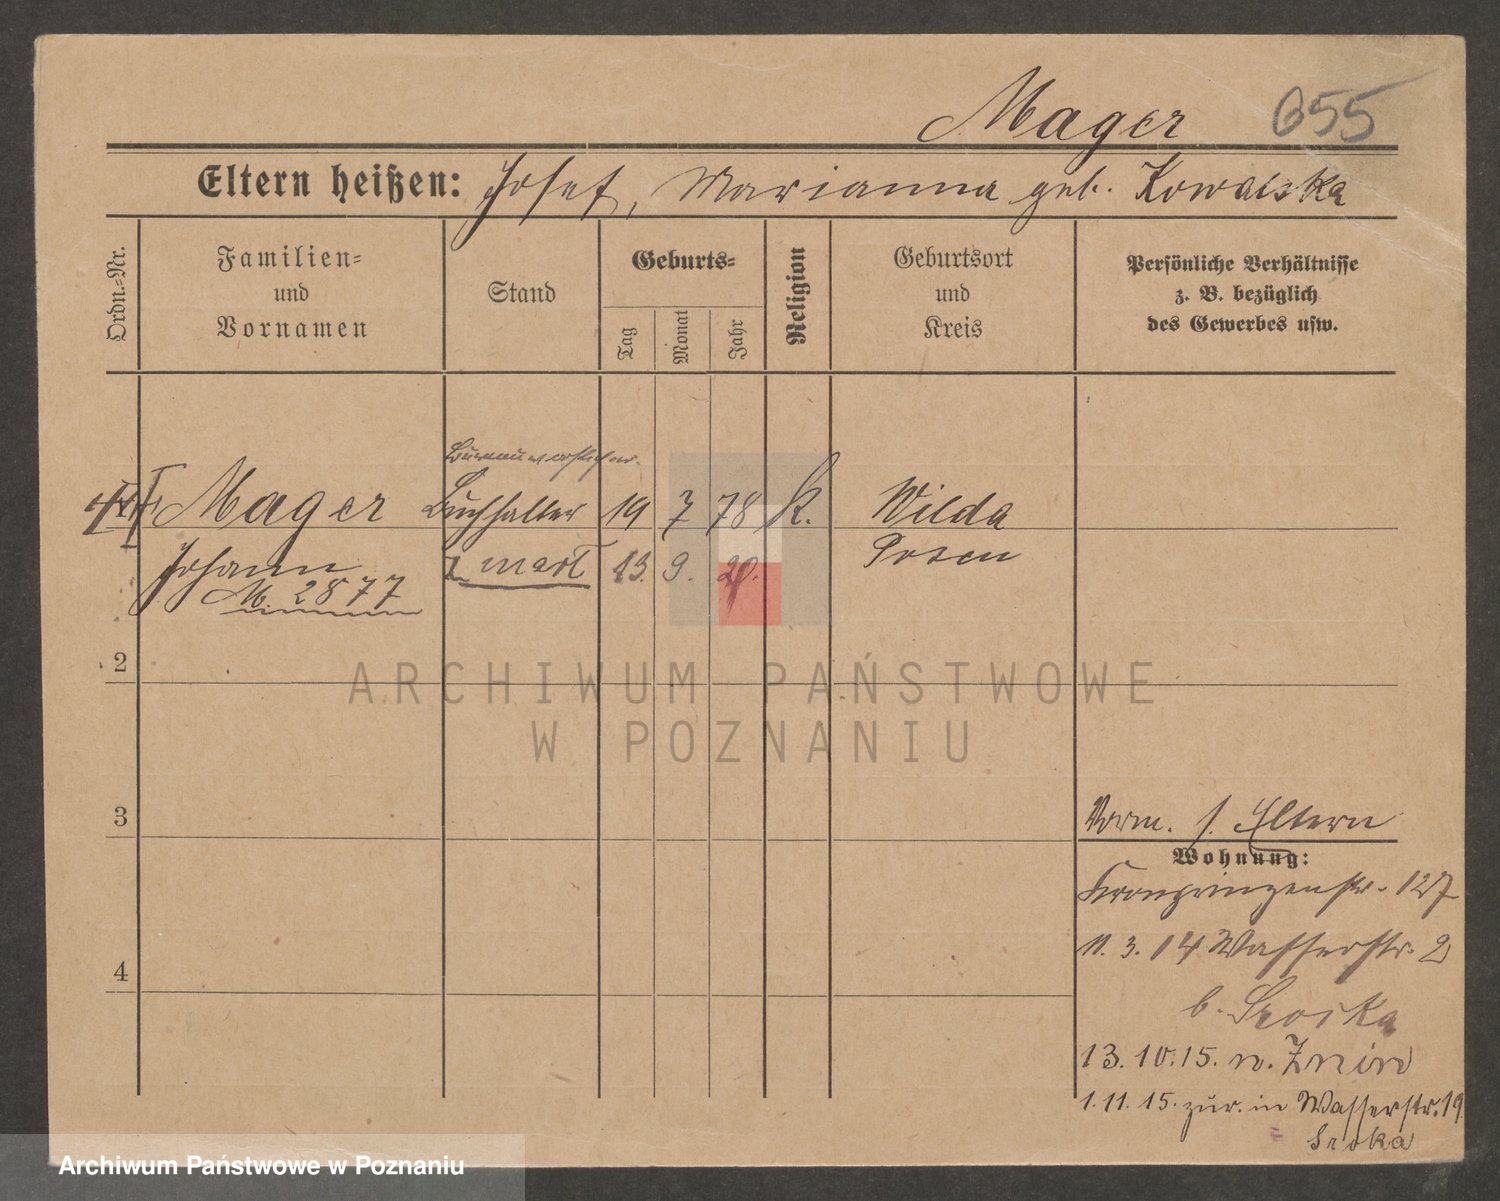 Mager 655
Eltern heißen: Josef, Marianna geb. Kowalska
Ordn.=Nr.
Familien=
und
Vornamen
Stand
Geburts=
Tag
Monat
Jahr
Religion
Geburtsort
und
Kreis
Persönliche Verhältnisse
z. B. bezüglich
des Gewerbes usw.
Bureauvorsteher
Mager Buchhalter 19 7 78 K. Wilda
Johann 13. 9. 20. Posen
M. 2877
2
ARCHIWUM PAŃSTWOWE
W POZNANIU
3
Vorm. s. Eltern
Wohnung:
Kronprinzenstr. 127
11. 3. 14 Wasserstr. 2
4
b. Sroka
13. 10. 15. n. Znin
1. 11. 15. zur. in Wasserstr. 19
Sroka
Archiwum Państwowe w Poznaniu